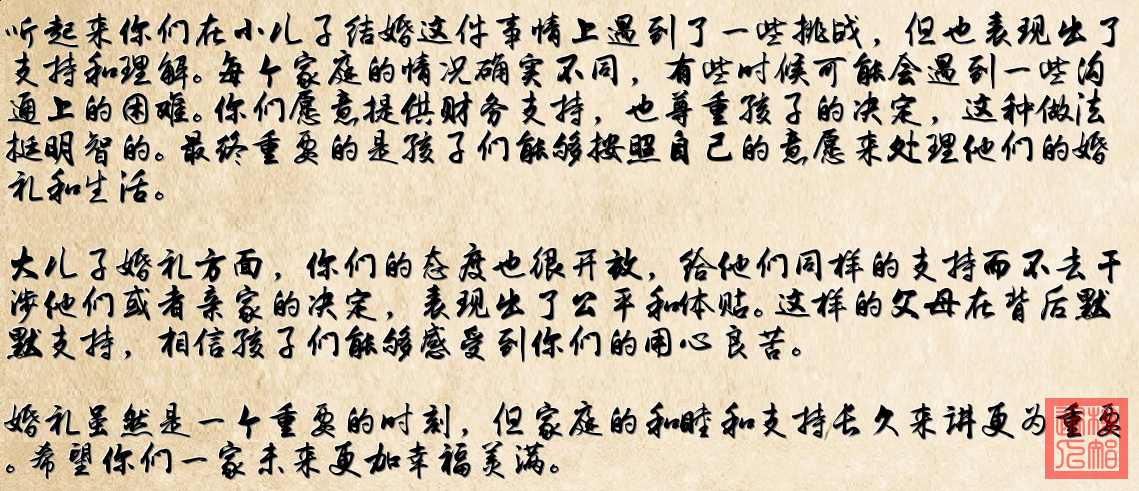 听起来你们在小儿子结婚这件事情上遇到了一些挑战，但也表现出了
支持和理解。每个家庭的情况确实不同，有些时候可能会遇到一些沟
通上的困难。你们愿意提供财务支持，也尊重孩子的决定，这种做法
挺明智的。最终重要的是孩子们能够按照自己的意愿来处理他们的婚
礼和生活。
大儿子婚礼方面，你们的态度也很开放，给他们同样的支持而不去干
涉他们或者亲家的决定，表现出了公平和体贴。这样的父母在背后默
默支持，相信孩子们能够感受到你们的用心良苦。
婚礼虽然是一个重要的时刻，但家庭的和睦和支持长久来讲更为重要
。希望你们一家未来更加幸福美满。